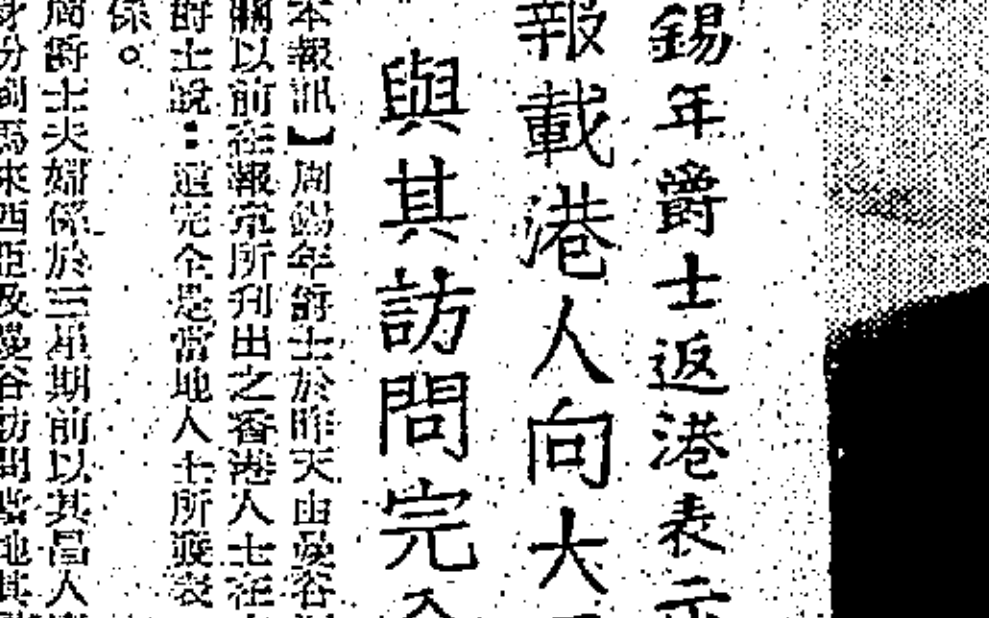 錫年爵士返港表示
報載港人向大
與其訪問完全
本報訊】周錫年爵士於昨天由曼谷
關以前在報章所刊出之香港人士在
爵士說：這完全是當地人士所發表
係。
周爵士夫婦係於三星期前以其個人
身份到馬來西亞及曼谷訪問當地其